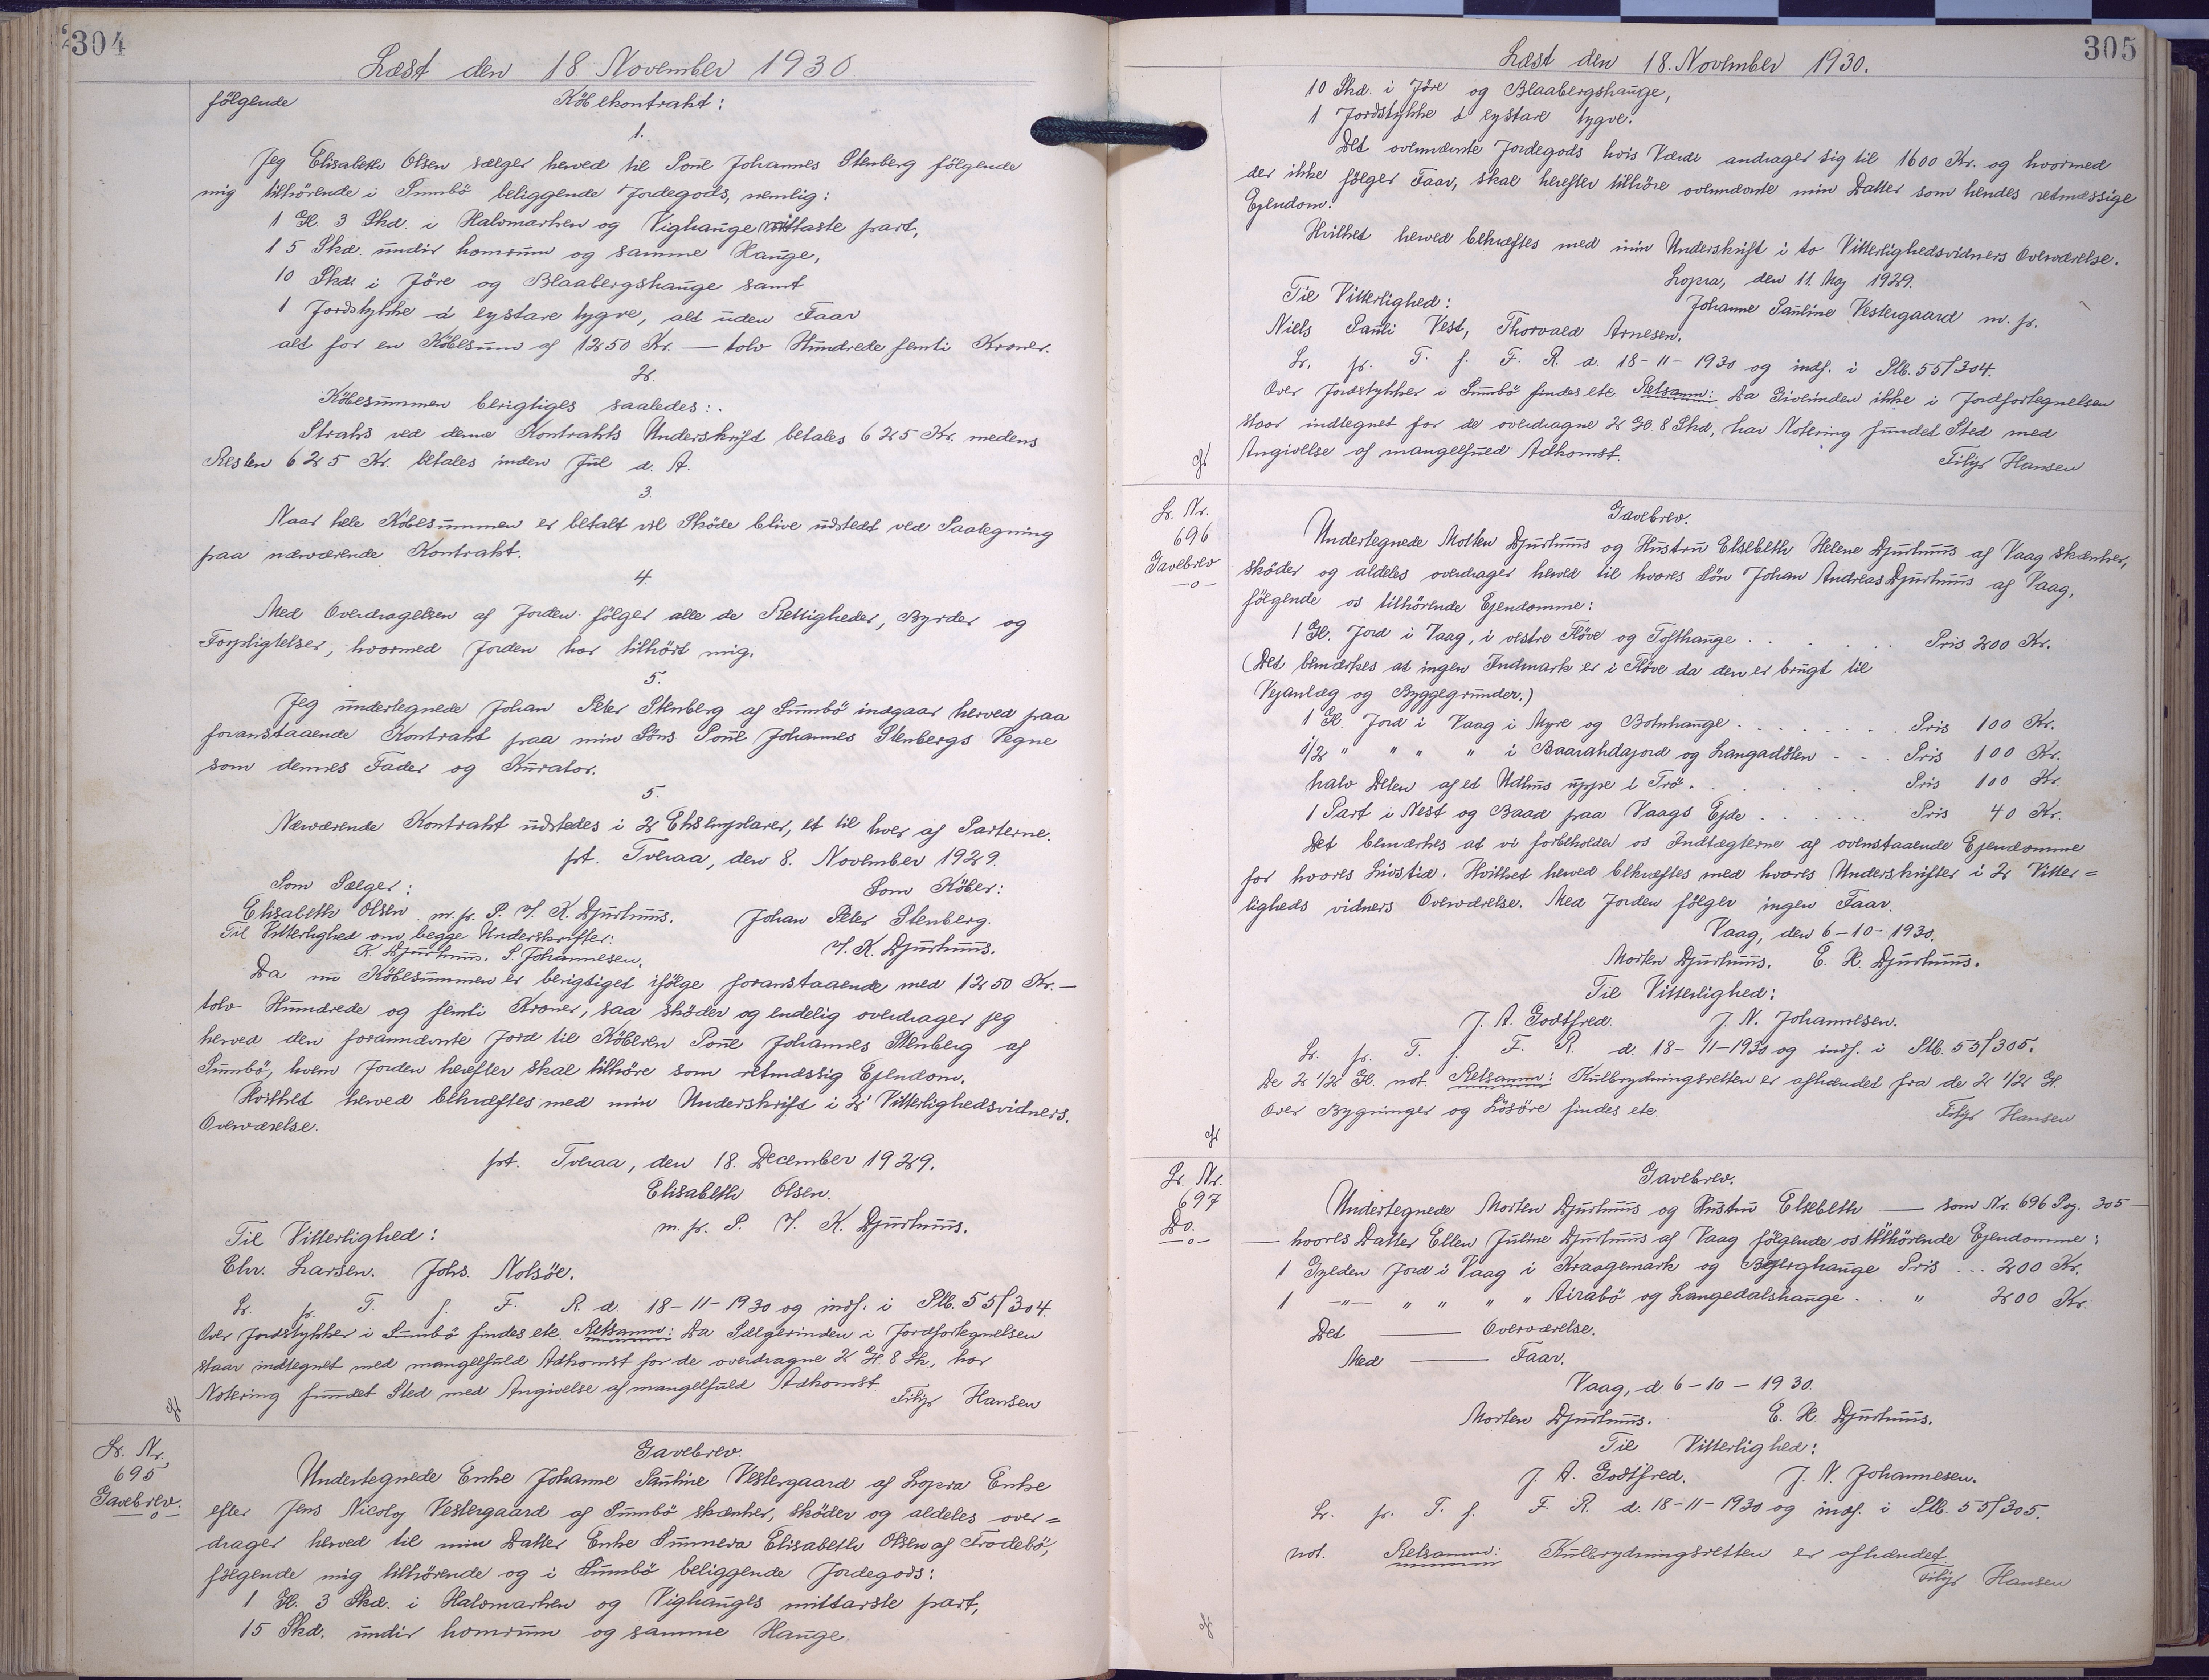 304
Læst den 18. November 1930
følgende Købekontrakt:
1.
Jeg Elisabeth Olsen sælger herved til Poul Johannes Stenberg følgende
mig tilhørende i Sumbø beliggende Jordegods, nemlig:
1 Gl. 3 Skd. i Halvmarken og Vighauge mittaste part,
15 Skd. undir homrum og samme Hauge,
10 Skd. i Jöre og Blaabergshauge samt
1 Jordstykke á eystare tygve, alt uden Faar
alt for en Købesum af 1250 Kr. — tolv Hundrede femti Kroner.
2.
Købesummen berigtiges saaledes:
Straks ved denne Kontrakts Underskrift betales 625 Kr. medens
Resten 625 Kr. betales inden Jul d. A.
3.
Naar hele Købesummen er betalt vil Skøde blive udstedt ved Paategning
paa nærværende Kontrakt.
4.
Med Overdragelsen af Jorden følger alle de Rettigheder, Byrder og
Forpligtelser, hvormed Jorden har tilhørt mig.
5.
Jeg undertegnede Johan Peter Stenberg af Sumbø indgaar herved paa
foranstaaende Kontrakt paa min Søns Poul Johannes Stenbergs Vegne
som dennes Fader og Kurator.
5.
Nærværende Kontrakt udstedes i 2 Eksemplarer, et til hver af Parterne.
pt. Tveraa, den 8. November 1929.
Som Sælger: Som Køber:
Elisabeth Olsen m. p. P. J. K. Djurhuus. Johan Peter Stenberg.
Til Vitterlighed om begge Underskrifter: J. K. Djurhuus.
K. Djurhuus. S. Johannesen.
Da nu Købesummen er berigtiget ifølge foranstaaende med 1250 Kr. —
tolv Hundrede og femti Kroner, saa skøder og endelig overdrager jeg
herved den forannævnte Jord til Køberen Poul Johannes Stenberg af
Sumbø, hvem Jorden herefter skal tilhøre som retmæssig Ejendom.
Hvilket herved bekræftes med min Underskrift i 2 Vitterlighedsvidners
Overværelse.
pt. Tveraa, den 18. December 1929.
Elisabeth Olsen.
Til Vitterlighed: m. p. P. J. K. Djurhuus.
Chr. Larsen. Johs. Nolsøe.
L. p. T. f. F. R. d. 18-11-1930 og indf. i Plb. 55/304.
Over Jordstykker i Sumbø findes etc. Retsanm: Da Sælgerinden i Jordfortegnelsen
staar indtegnet med mangelfuld Adkomst for de overdragne 2 Gl. 8 Sk., har
Notering fundet Sted med Angivelse af mangelfuld Adkomst.
Filip Hansen
L. Nr.
695
Gavebrev.
—o—
Gavebrev.
Undertegnede Enke Johanne Pauline Vestergaard af Lopra Enke
efter Jens Nicolaj Vestergaard af Sumbø skænker, skøder og aldeles over=
drager herved til min Datter Enke Sunneva Elisabeth Olsen af Frodebø,
følgende mig tilhørende og i Sumbø beliggende Jordegods:
1 Gl. 3 Skd. i Halvmarken og Vighauges mittarste part,
15 Skd. undir homrum og samme Hauge.
305
Læst den 18. November 1930.
10 Skd. i Jöre og Blaabergshauge,
1 Jordstykke á eystare tygve.
Det ovennævnte Jordegods hvis Værdi andrager sig til 1600 Kr. og hvormed
der ikke følger Faar, skal herefter tilhøre ovennævnte min Datter som hendes retmæssige
Ejendom.
Hvilket herved bekræftes med min Underskrift i to Vitterlighedsvidners Overværelse.
Lopra, den 11. Maj 1929.
Til Vitterlighed: Johanne Pauline Vestergaard m. p.
Niels Pauli Vest, Thorvald Arnesen.
L. p. T. f. F. R. d. 18-11-1930 og indf. i Plb. 55/304.
Over Jordstykker i Sumbø findes etc. Retsanm: Da Giverinden ikke i Jordfortegnelsen
staar indtegnet for de overdragne 2 Gl. 8 Skd, har Notering fundet Sted med
Angivelse af mangelfued Adkomst.
Filip Hansen
L. Nr.
696
Gavebrev
—o—
Gavebrev.
Undertegnede Morten Djurhuus og Hustru Elsebeth Helene Djurhuus af Vaag skænker,
skøder og aldeles overdrager herved til hvores Søn Johan Andreas Djurhuus af Vaag,
følgende os tilhørende Ejendomme:
1 Gl. Jord i Vaag, i vestre Fløve og Tofthauge . . . . . Pris 200 Kr.
(Det bemærkes at ingen Indmark er i Fløve da den er brugt til
Vejanlæg og Byggegrunder.)
1 Gl. Jord i Vaag i Myre og Botnhauge . . . . . . . Pris 100 Kr.
1/2 " " " " i Baarahdajord og Langadölen - - . Pris 100 Kr.
halv Delen af et Udhus uppe i Trö . . . . . . Pris 100 Kr.
1 Part i Nest og Baad paa Vaags Ejde . . . . . . Pris 40 Kr.
Det bemærkes at vi forbeholder os Indtægterne af ovenstaaende Ejendomme
for hvores Livstid. Hvilket herved bekræftes med hvores Underskrifter i 2 Vitter=
ligheds vidners Overværelse. Med Jorden følger ingen Faar.
Vaag, den 6-10-1930.
Morten Djurhuus. E. H. Djurhuus.
Til Vitterlighed:
J. A. Godtfred. J. N. Johannesen.
L. p. T. f. F. R. d. 18-11-1930 og indf. i Plb. 55/305.
De 2 1/2 Gl. not. Retsanm: Kulbrydningsretten er afhændet fra de 2 1/2 Gl.
Over Bygninger og Løsøre findes etc.
Filip Hansen
L. Nr.
697
Do.
—o—
Gavebrev.
Undertegnede Morten Djurhuus og Hustru Elsebeth — som Nr. 696 Pag. 305 —
— hvores Datter Ellen Juline Djurhuus af Vaag følgende os tilhørende Ejendomme:
1 Gylden Jord i Vaag i Kraagemark og Bøjerghauge Pris ... 200 Kr.
1 -"- " " " " Airabø og Langedalshauge . . " 200 Kr.
Det — Overværelse.
Med — Faar.
Vaag, d. 6-10-1930.
Morten Djurhuus. E. H. Djurhuus.
Til Vitterlighed:
J. A. Godtfred. J. N. Johannesen.
L. p. T. f. F. R. d. 18-11-1930 og indf. i Plb. 55/305.
not. Retsanm: Kulbrydningsretten er afhændet
Filip Hansen